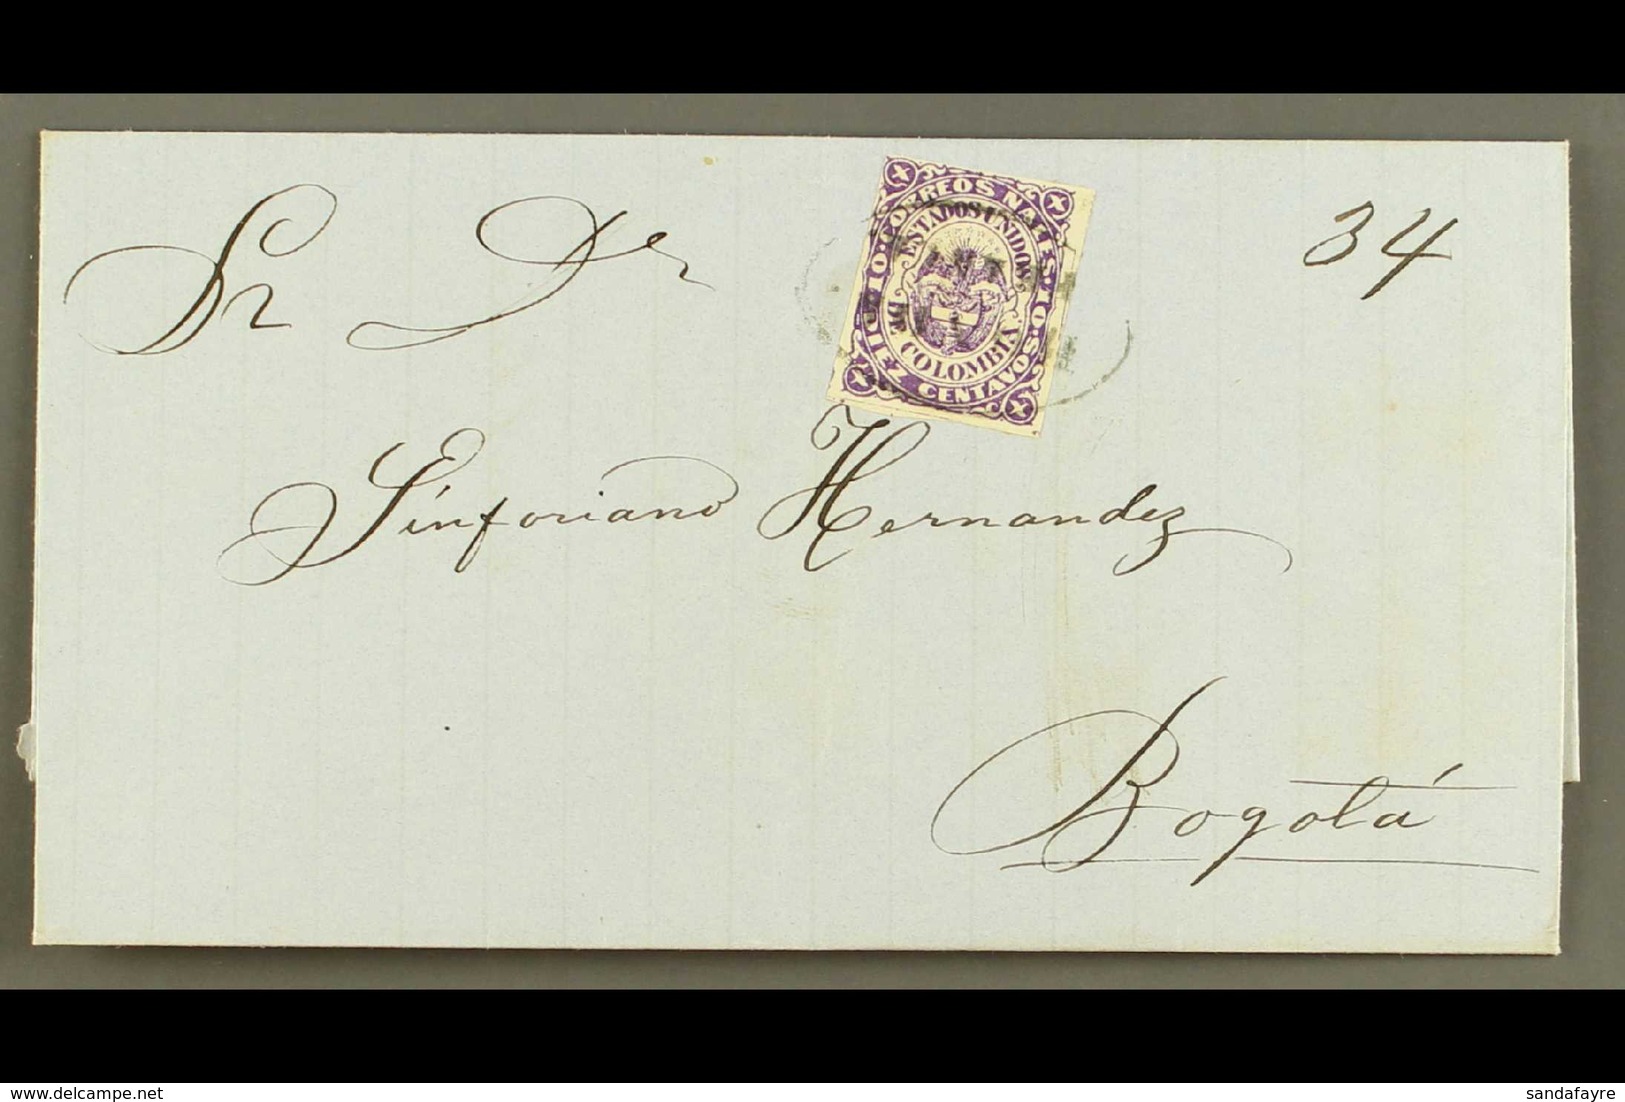 Sr Dr
34
CORREOS NALES
10 · DIEZ CENTAVOS · 10
ESTADOS UNIDOS
DE COLOMBIA
Sinforiano Hernandez
Bogotá
sandafayre